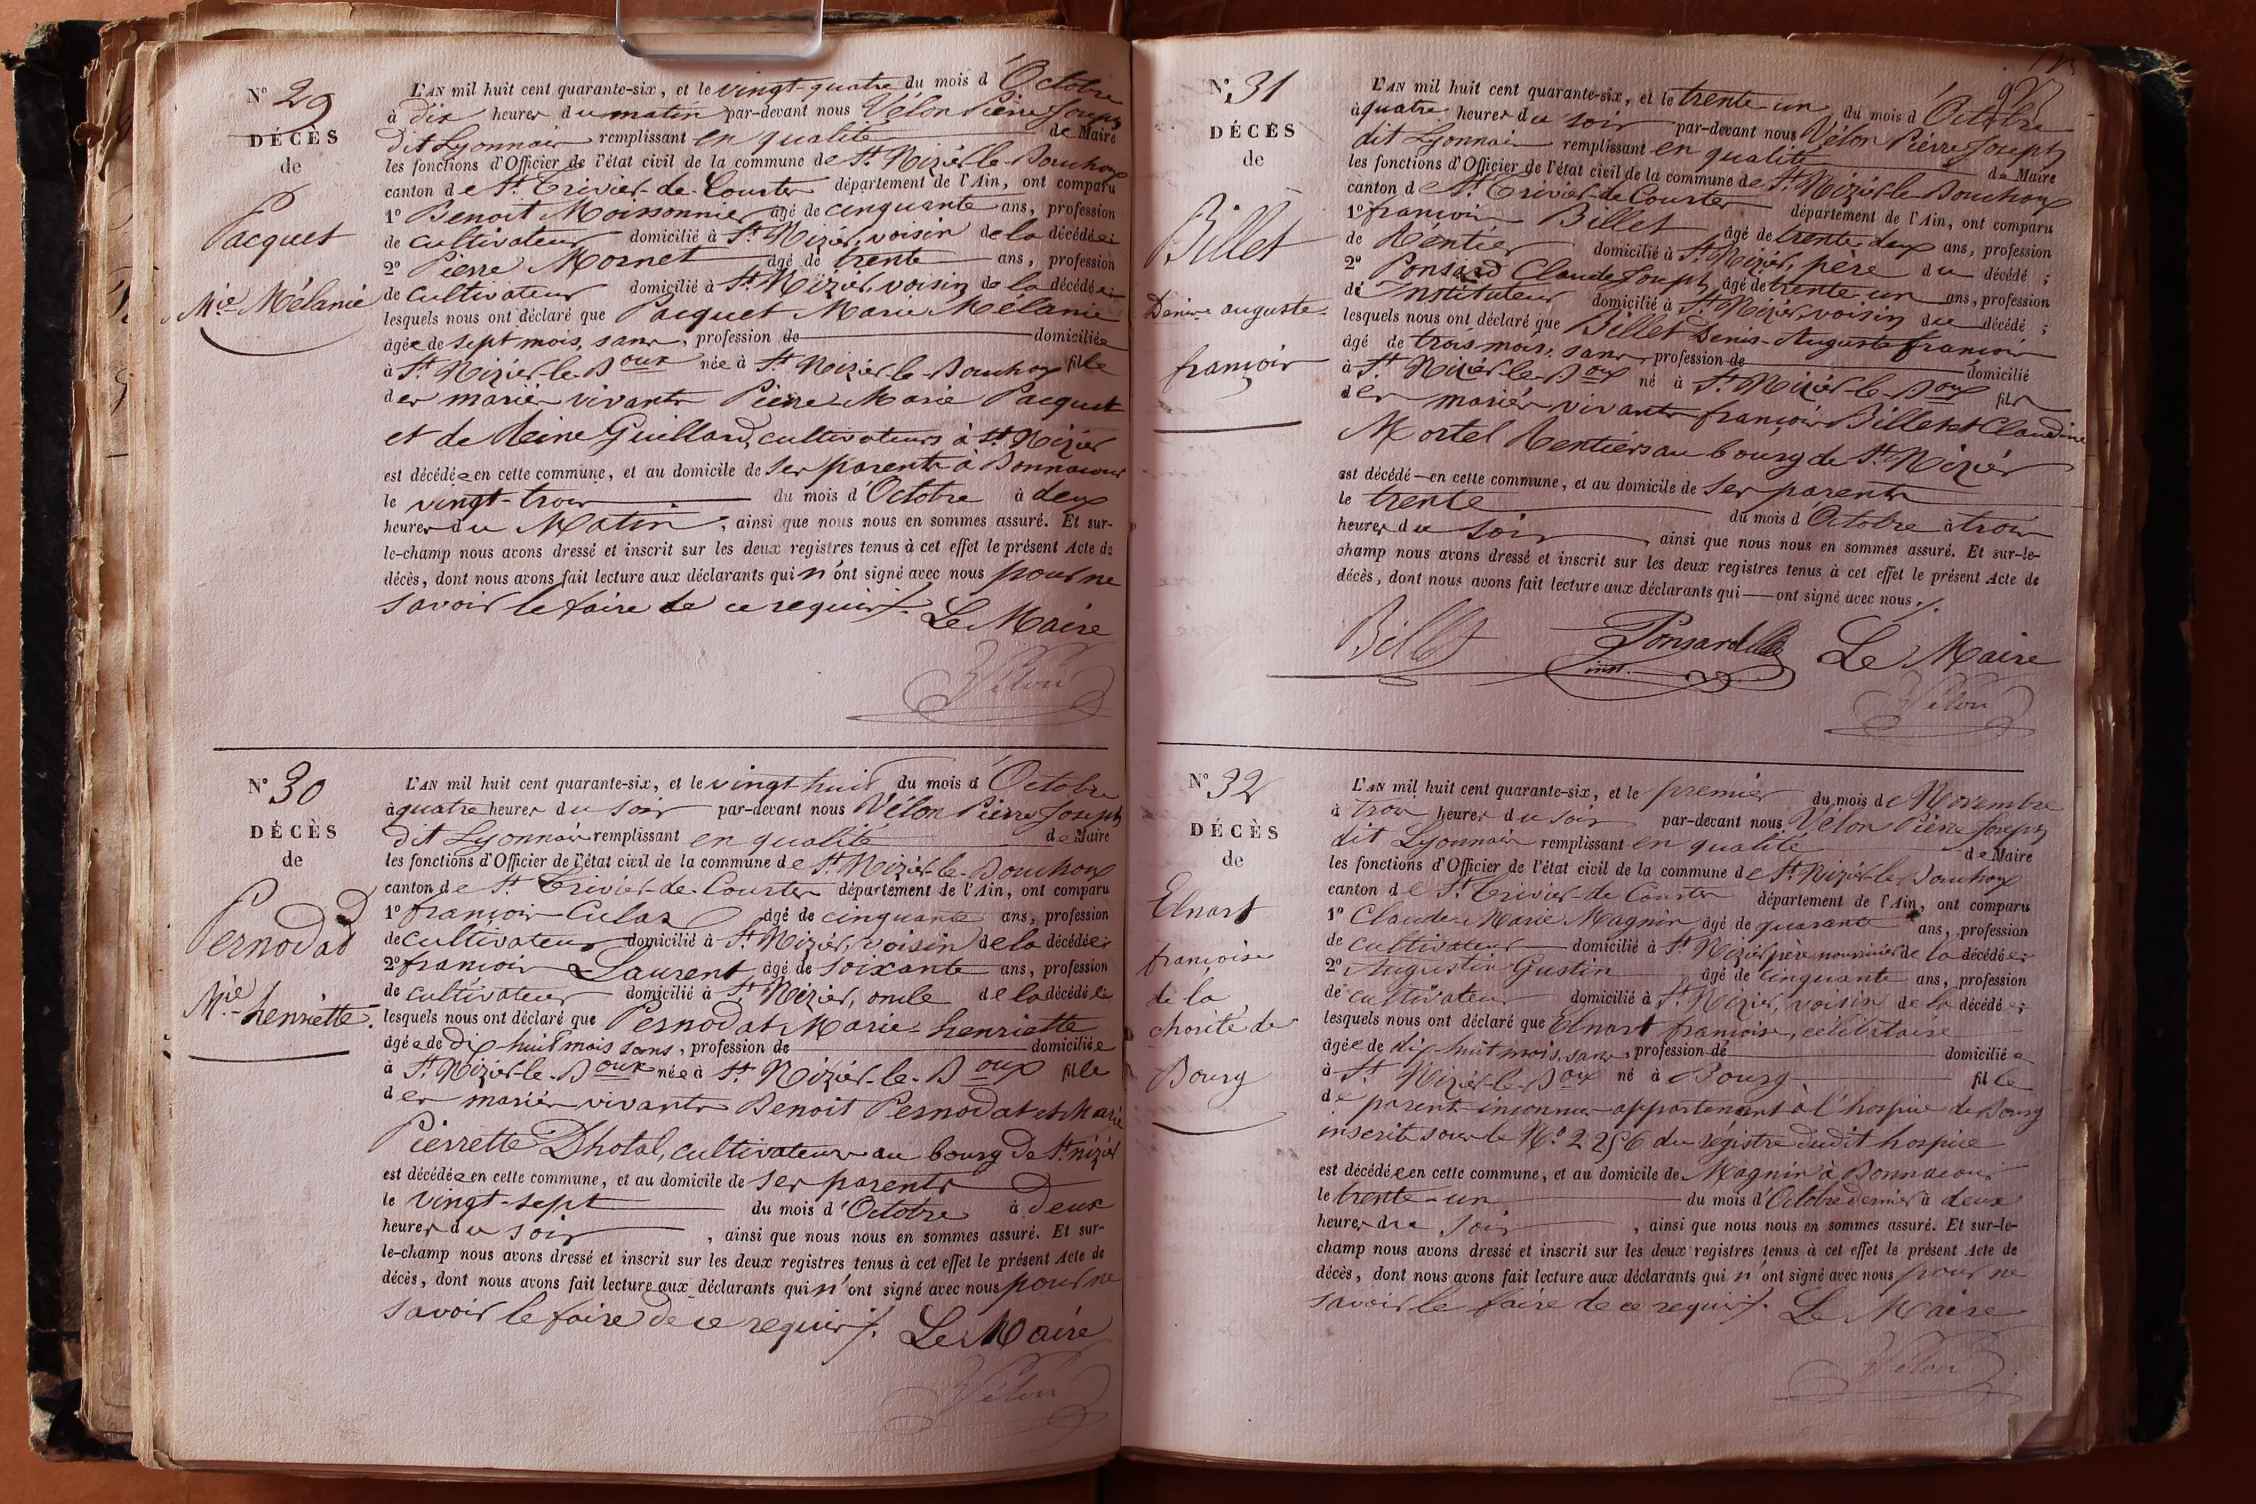 N° 29
DÉCÈS
de
Pacquet
Mie Mélanie
L'AN mil huit cent quarante-six, et le vingt-quatre du mois d'Octobre
à dix heures du matin par-devant nous Vélon Pierre Joseph
dit Lyonnais remplissant en qualité de Maire
les fonctions d'Officier de l'état civil de la commune de St Nizier-le-Bouchoux
canton de St Trivier-de-Courtes département de l'Ain, ont comparu
1° Benoit Moissonnier âgé de cinquante ans, profession
de cultivateur domicilié à St Nizier, voisin de la décédée;
2° Pierre Mornet âgé de trente ans, profession
de cultivateur domicilié à St Nizier, voisin de la décédée;
lesquels nous ont déclaré que Pacquet Marie Mélanie
âgée de sept mois, sans, profession de domiciliée
à St Nizier-le-Boux née à St Nizier-le-Bouchoux fille
des mariés vivants Pierre-Marie Pacquet
et de Reine Guillard, cultivateurs à St Nizier
est décédée en cette commune, et au domicile de ses parents à
le vingt-trois du mois d'Octobre à deux
heures du Matin, ainsi que nous nous en sommes assuré. Et sur-
le-champ nous avons dressé et inscrit sur les deux registres tenus à cet effet le présent Acte de
décès, dont nous avons fait lecture aux déclarants qui n'ont signé avec nous pour ne
savoir le faire de ce requis./.
Le Maire
Vélon
N° 30
DÉCÈS
de
Pernodat
Mie henriette.
L'AN mil huit cent quarante-six, et le vingt huit du mois d'Octobre
à quatre heures du soir par-devant nous Vélon Pierre Joseph
dit Lyonnais remplissant en qualité de Maire
les fonctions d'Officier de l'état civil de la commune de St Nizier-le-Bouchoux
canton de St Trivier-de-Courtes département de l'Ain, ont comparu
1° françois Culas âgé de cinquante ans, profession
de cultivateur domicilié à St Nizier, voisin de la décédée;
2° françois Laurent âgé de soixante ans, profession
de cultivateur domicilié à St Nizier, oncle de la décédée
lesquels nous ont déclaré que Pernodat Marie-henriette
âgée de dix-huit mois sans, profession de domiciliée
à St Nizier-le-Boux née à St Nizier-le-Boux fille
des mariés vivants Benoit Pernodat et Marie
Pierrette Dhotal, cultivateurs au bourg de St nizier
est décédée en cette commune, et au domicile de ses parents
le vingt-sept du mois d'Octobre à deux
heures du soir, ainsi que nous nous en sommes assuré. Et sur-
le-champ nous avons dressé et inscrit sur les deux registres tenus à cet effet le présent Acte de
décès, dont nous avons fait lecture aux déclarants qui n'ont signé avec nous pour ne
savoir le faire de ce requis./.
Le Maire
Vélon
N° 31
DÉCÈS
de
Billet
Denis auguste
françois
L'AN mil huit cent quarante-six, et le trente-un du mois d'Octobre
à quatre heures du soir par-devant nous Vélon Pierre Joseph
dit Lyonnais remplissant en qualité de Maire
les fonctions d'Officier de l'état civil de la commune de St Nizier-le-Bouchoux
canton de St Trivier-de-Courtes département de l'Ain, ont comparu
1° françois Billet âgé de trente-deux ans, profession
de Rentier domicilié à St Nizier, père du décédé;
2° Ponsard Claude Joseph âgé de trente-un ans, profession
de Instituteur domicilié à St Nizier, voisin du décédé;
lesquels nous ont déclaré que Billet Denis-Auguste françois
âgé de trois mois, sans profession de domicilié
à St Nizier-le-Boux né à St Nizier-le-Boux fils
des mariés vivants françois Billet et Claudine
Mortel Rentiers au bourg de St Nizier
est décédé en cette commune, et au domicile de ses parents
le trente du mois d'Octobre à trois
heures du soir, ainsi que nous nous en sommes assuré. Et sur-le-
champ nous avons dressé et inscrit sur les deux registres tenus à cet effet le présent Acte de
décès, dont nous avons fait lecture aux déclarants qui ont signé avec nous./.
Billet Ponsard inst. Le Maire
Vélon
N° 32
DÉCÈS
de
Elnart
françoise
de la
charité de
Bourg
L'AN mil huit cent quarante-six, et le premier du mois de Novembre
à trois heures du soir par-devant nous Vélon Pierre Joseph
dit Lyonnais remplissant en qualité de Maire
les fonctions d'Officier de l'état civil de la commune de St Nizier-le-Bouchoux
canton de St Trivier-de-Courtes département de l'Ain, ont comparu
1° Claude-Marie Magnin âgé de quarante ans, profession
de cultivateur domicilié à St Nizier, père nourricier de la décédée;
2° Augustin Gustin âgé de cinquante ans, profession
de cultivateur domicilié à St Nizier, voisin de la décédée;
lesquels nous ont déclaré que Elnart françoise, célibataire
âgée de dix-huit mois, sans, profession de domiciliée
à St Nizier-le-Boux né à Bourg fille
de parents inconnus appartenant à l'hospice de Bourg
inscrite sous le N° 2256 du régistre dudit hospice
est décédée en cette commune, et au domicile de Magnin à
le trente-un du mois d'Octobre dernier à deux
heures du soir, ainsi que nous nous en sommes assuré. Et sur-le-
champ nous avons dressé et inscrit sur les deux registres tenus à cet effet le présent Acte de
décès, dont nous avons fait lecture aux déclarants qui n'ont signé avec nous pour ne
savoir le faire de ce requis./. Le Maire
Vélon